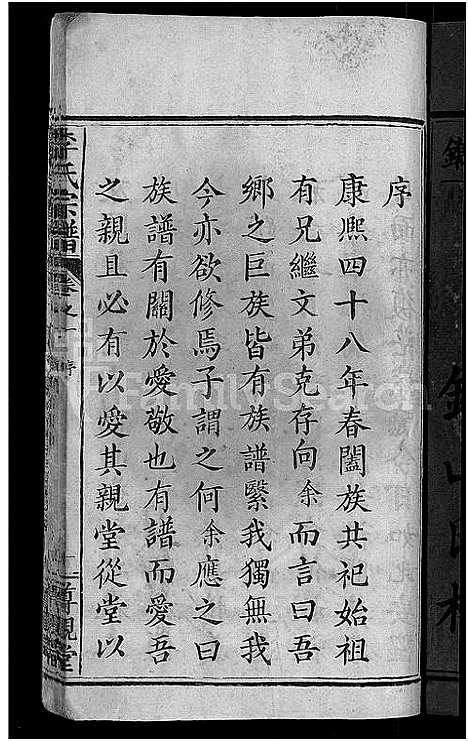 序
康熙四十八年春闔族共祀始祖
有兄繼文弟克存向余而言曰吾
鄉之巨族皆有族譜繄我獨無我
今亦欲修焉子謂之何余應之曰
族譜有關於愛敬也有譜而愛吾
之親且必有以愛其親堂從堂以
李氏宗譜 卷之一 序 一 尊親堂
FamilySearch